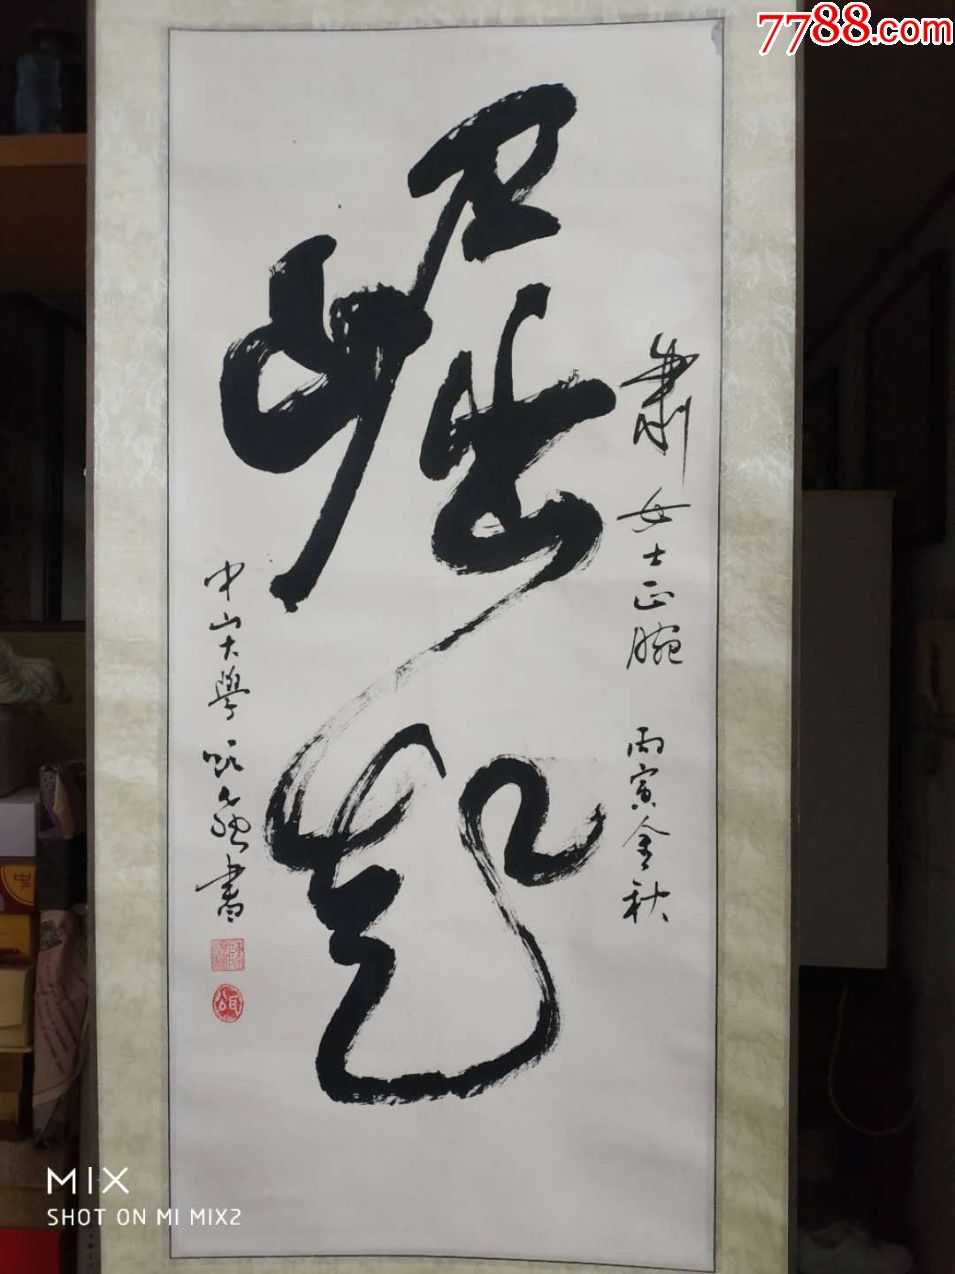 7788.com
崛起
肃女士正腕
丙寅金秋
中山大學
書
MIX
SHOT ON MI MIX2